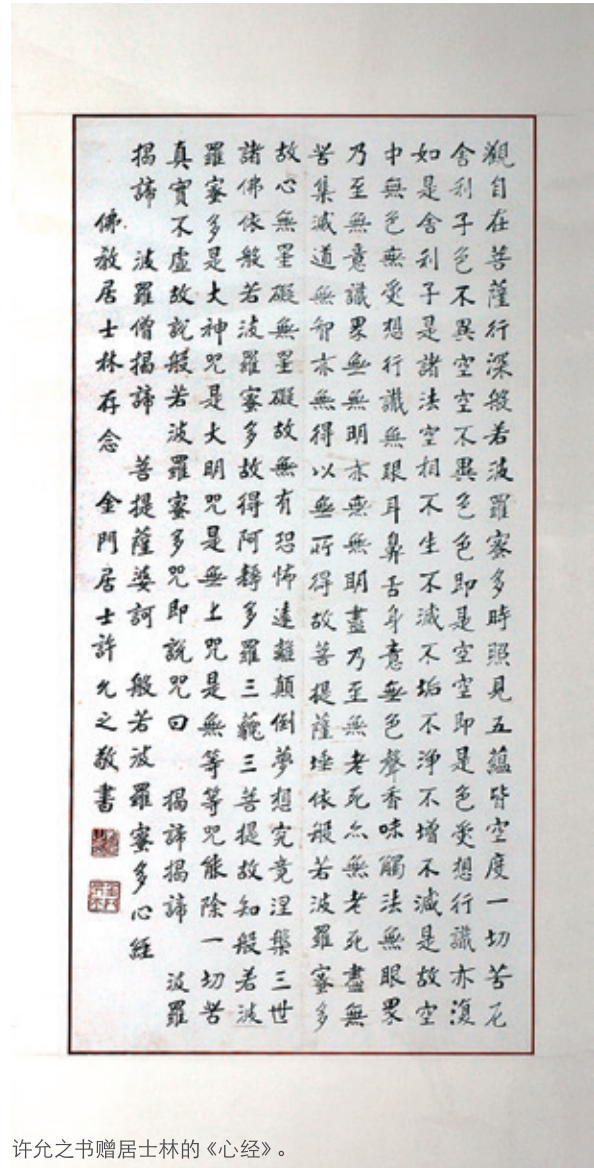 觀自在菩薩行深般若波羅蜜多時照見五蘊皆空度一切苦厄
舍利子色不異空空不異色色即是空空即是色受想行識亦復
如是舍利子是諸法空相不生不滅不垢不淨不增不減是故空
中無色無受想行識無眼耳鼻舌身意無色聲香味觸法無眼界
乃至無意識界無無明亦無無明盡乃至無老死亦無老死盡無
苦集滅道無智亦無得以無所得故菩提薩埵依般若波羅蜜多
故心無罣礙無罣礙故無有恐怖遠離顛倒夢想究竟涅槃三世
諸佛依般若波羅蜜多故得阿耨多羅三藐三菩提故知般若波
羅蜜多是大神咒是大明咒是無上咒是無等等咒能除一切苦
真實不虛故說般若波羅蜜多咒即說咒曰 揭諦揭諦 波羅
揭諦 波羅僧揭諦 菩提薩婆訶 般若波羅蜜多心經
佛教居士林存念 金門居士許允之敬書
许允之书赠居士林的《心经》。